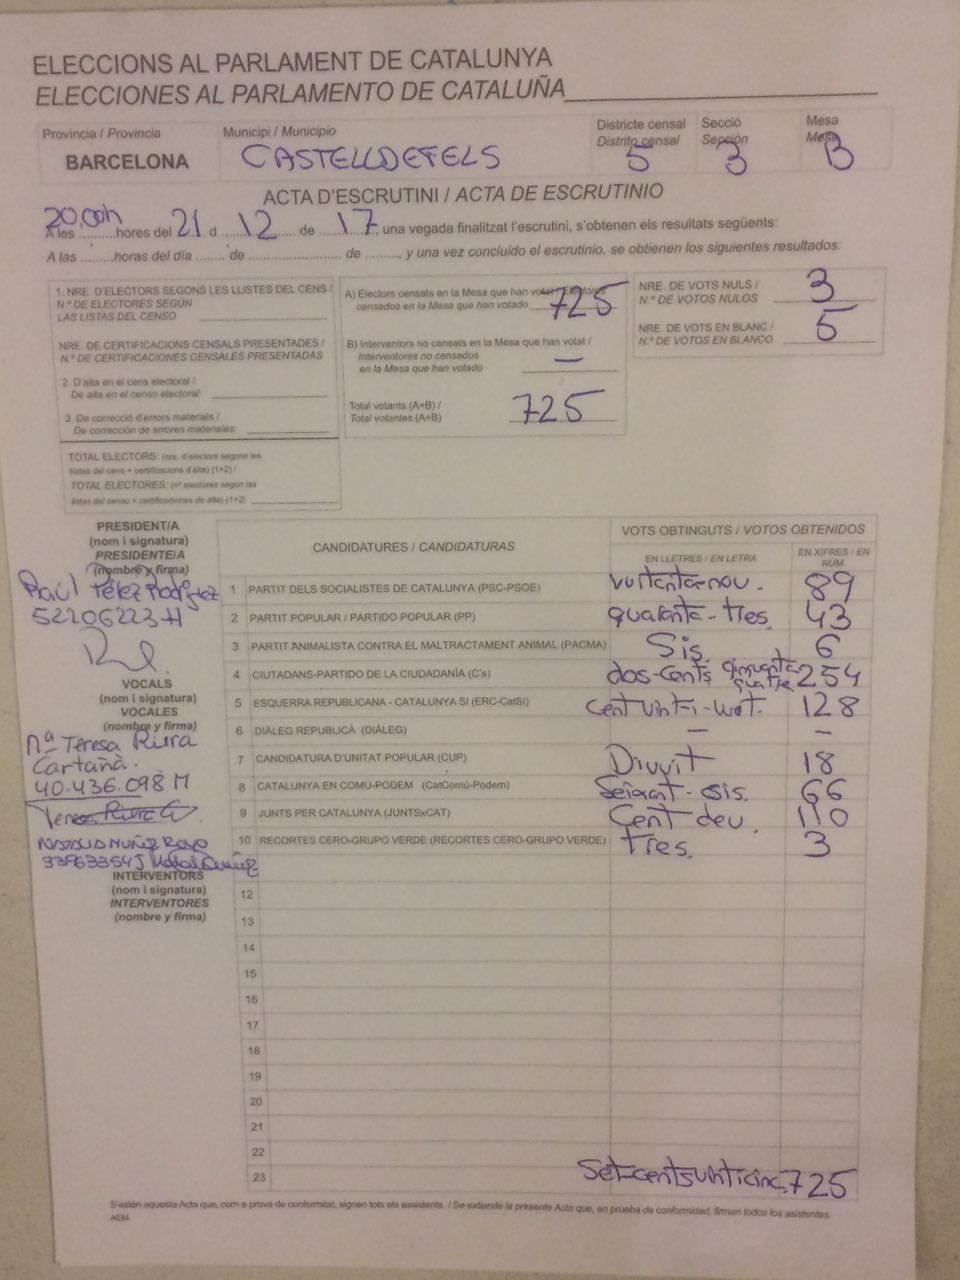 ELECCIONS AL PARLAMENT DE CATALUNYA
ELECCIONES AL PARLAMENTO DE CATALUÑA
Provincia / Provincia
BARCELONA
Municipi / Municipio
CASTELLDEFELS
Districte censal
Distrito censal
5
Secció
Sección
3
Mesa
Mesa
B
ACTA D'ESCRUTINI / ACTA DE ESCRUTINIO
20,00h
A les ......... hores del 21 d ... 12 ... de ... 17, una vegada finalitzat l'escrutini, s'obtenen els resultats següents:
A las ........ horas del día ........ de ........................ de ........, y una vez concluido el escrutinio, se obtienen los siguientes resultados:
1. NRE. D'ELECTORS SEGONS LES LLISTES DEL CENS /
N.º DE ELECTORES SEGÚN
LAS LISTAS DEL CENSO
NRE. DE CERTIFICACIONS CENSALS PRESENTADES /
N.º DE CERTIFICACIONES CENSALES PRESENTADAS
2. D'alta en el cens electoral /
De alta en el censo electoral:
3. De correcció d'errors materials /
De corrección de errores materiales:
TOTAL ELECTORS: (nre. d'electors segons les
llistes del cens + certificacions d'alta) (1+2) /
TOTAL ELECTORES: (nº electores según las
listas del censo + certificaciones de alta) (1+2)
A) Electors censats en la Mesa que han votat / Electores
censados en la Mesa que han votado 725
B) Interventors no censats en la Mesa que han votat /
Interventores no censados
en la Mesa que han votado —
Total votants (A+B) /
Total votantes (A+B) 725
NRE. DE VOTS NULS /
N.º DE VOTOS NULOS 3
NRE. DE VOTS EN BLANC /
N.º DE VOTOS EN BLANCO 5
PRESIDENT/A
(nom i signatura)
PRESIDENTE/A
(nombre y firma)
Raúl Pérez Rodríguez
52206223H
VOCALS
(nom i signatura)
VOCALES
(nombre y firma)
Mª Teresa Riera
Cartañà.
40.436.098 M
Teresa Riera C
NATALIA NUÑEZ ROYO
INTERVENTORS
(nom i signatura)
INTERVENTORES
(nombre y firma)
CANDIDATURES / CANDIDATURAS
VOTS OBTINGUTS / VOTOS OBTENIDOS
EN LLETRES / EN LETRA
EN XIFRES / EN NÚM.
1 PARTIT DELS SOCIALISTES DE CATALUNYA (PSC-PSOE) vuitanta-nou. 89
2 PARTIT POPULAR / PARTIDO POPULAR (PP) quaranta-tres. 43
3 PARTIT ANIMALISTA CONTRA EL MALTRACTAMENT ANIMAL (PACMA) Sis. 6
4 CIUTADANS-PARTIDO DE LA CIUDADANÍA (C's) dos-cents cinquanta quatre 254
5 ESQUERRA REPUBLICANA - CATALUNYA SI (ERC-CatSí) cent vint-i-vuit. 128
6 DIÀLEG REPUBLICÀ (DIÀLEG) — —
7 CANDIDATURA D'UNITAT POPULAR (CUP) Divuit 18
8 CATALUNYA EN COMÚ-PODEM (CatComú-Podem) Seixant-sis. 66
9 JUNTS PER CATALUNYA (JUNTSxCAT) Cent deu. 110
10 RECORTES CERO-GRUPO VERDE (RECORTES CERO-GRUPO VERDE) tres. 3
12
13
14
15
16
17
18
19
20
21
22
23 Set-cents vinticinc, 725
S'estén aquesta Acta que, com a prova de conformitat, signen tots els assistents. / Se extiende la presente Acta que, en prueba de conformidad, firman todos los asistentes.
AEM